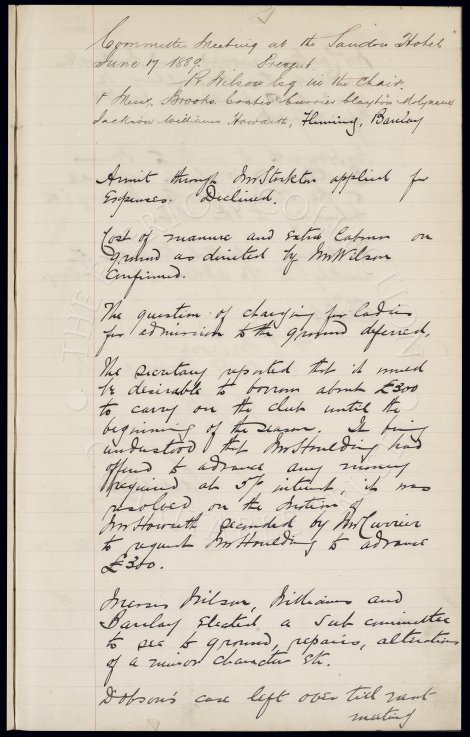 Committee Meeting at the Sandon Hotel
June 17 1889. Present.
R. Wilson Esq in the Chair.
& Messrs. Brooks Coates Currier Clayton Molyneux
Jackson Williams Howarth, Fleming, Barclay
Arnit through Mr Stockton applied for
Expenses. Declined.
Cost of manure and Extra Labour on
Ground as directed by Mr Wilson
Confirmed.
The question of charging for ladies
for admission to the ground deferred.
The secretary reported that it would
be desirable to borrow about £300
to carry on the club until the
beginning of the season. It being
understood that Mr Houlding had
offered to advance any money
required at 5% interest, it was
resolved on the motion of
Mr Howarth seconded by Mr Currier
to request Mr Houlding to advance
£300.
Messrs Wilson, Williams and
Barclay Elected a sub committee
to see to ground, repairs, alterations
of a minor character Etc.
Dobson's case left over till next
meeting